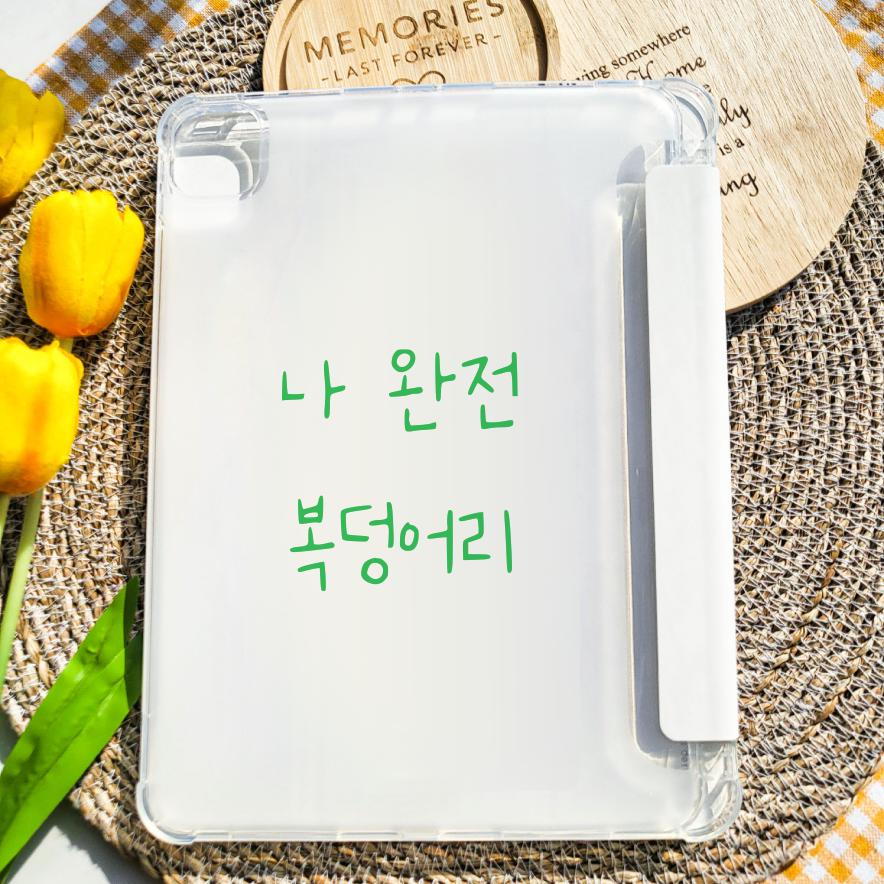 MEMORIES
- LAST FOREVER -
somewhere
Home
is a
나 완전
복덩어리